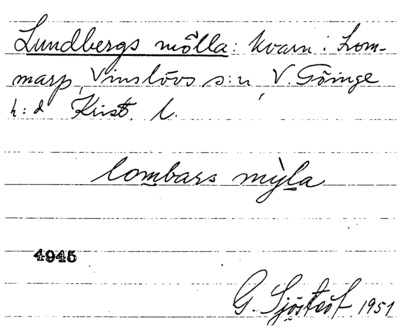 Lundbergs mölla: kvarn i Lom-
marp, Vinslövs s:n, V. Göinge
h:d Krist. l.
lombars mỳla
4945
G. Sjöstedt 1951